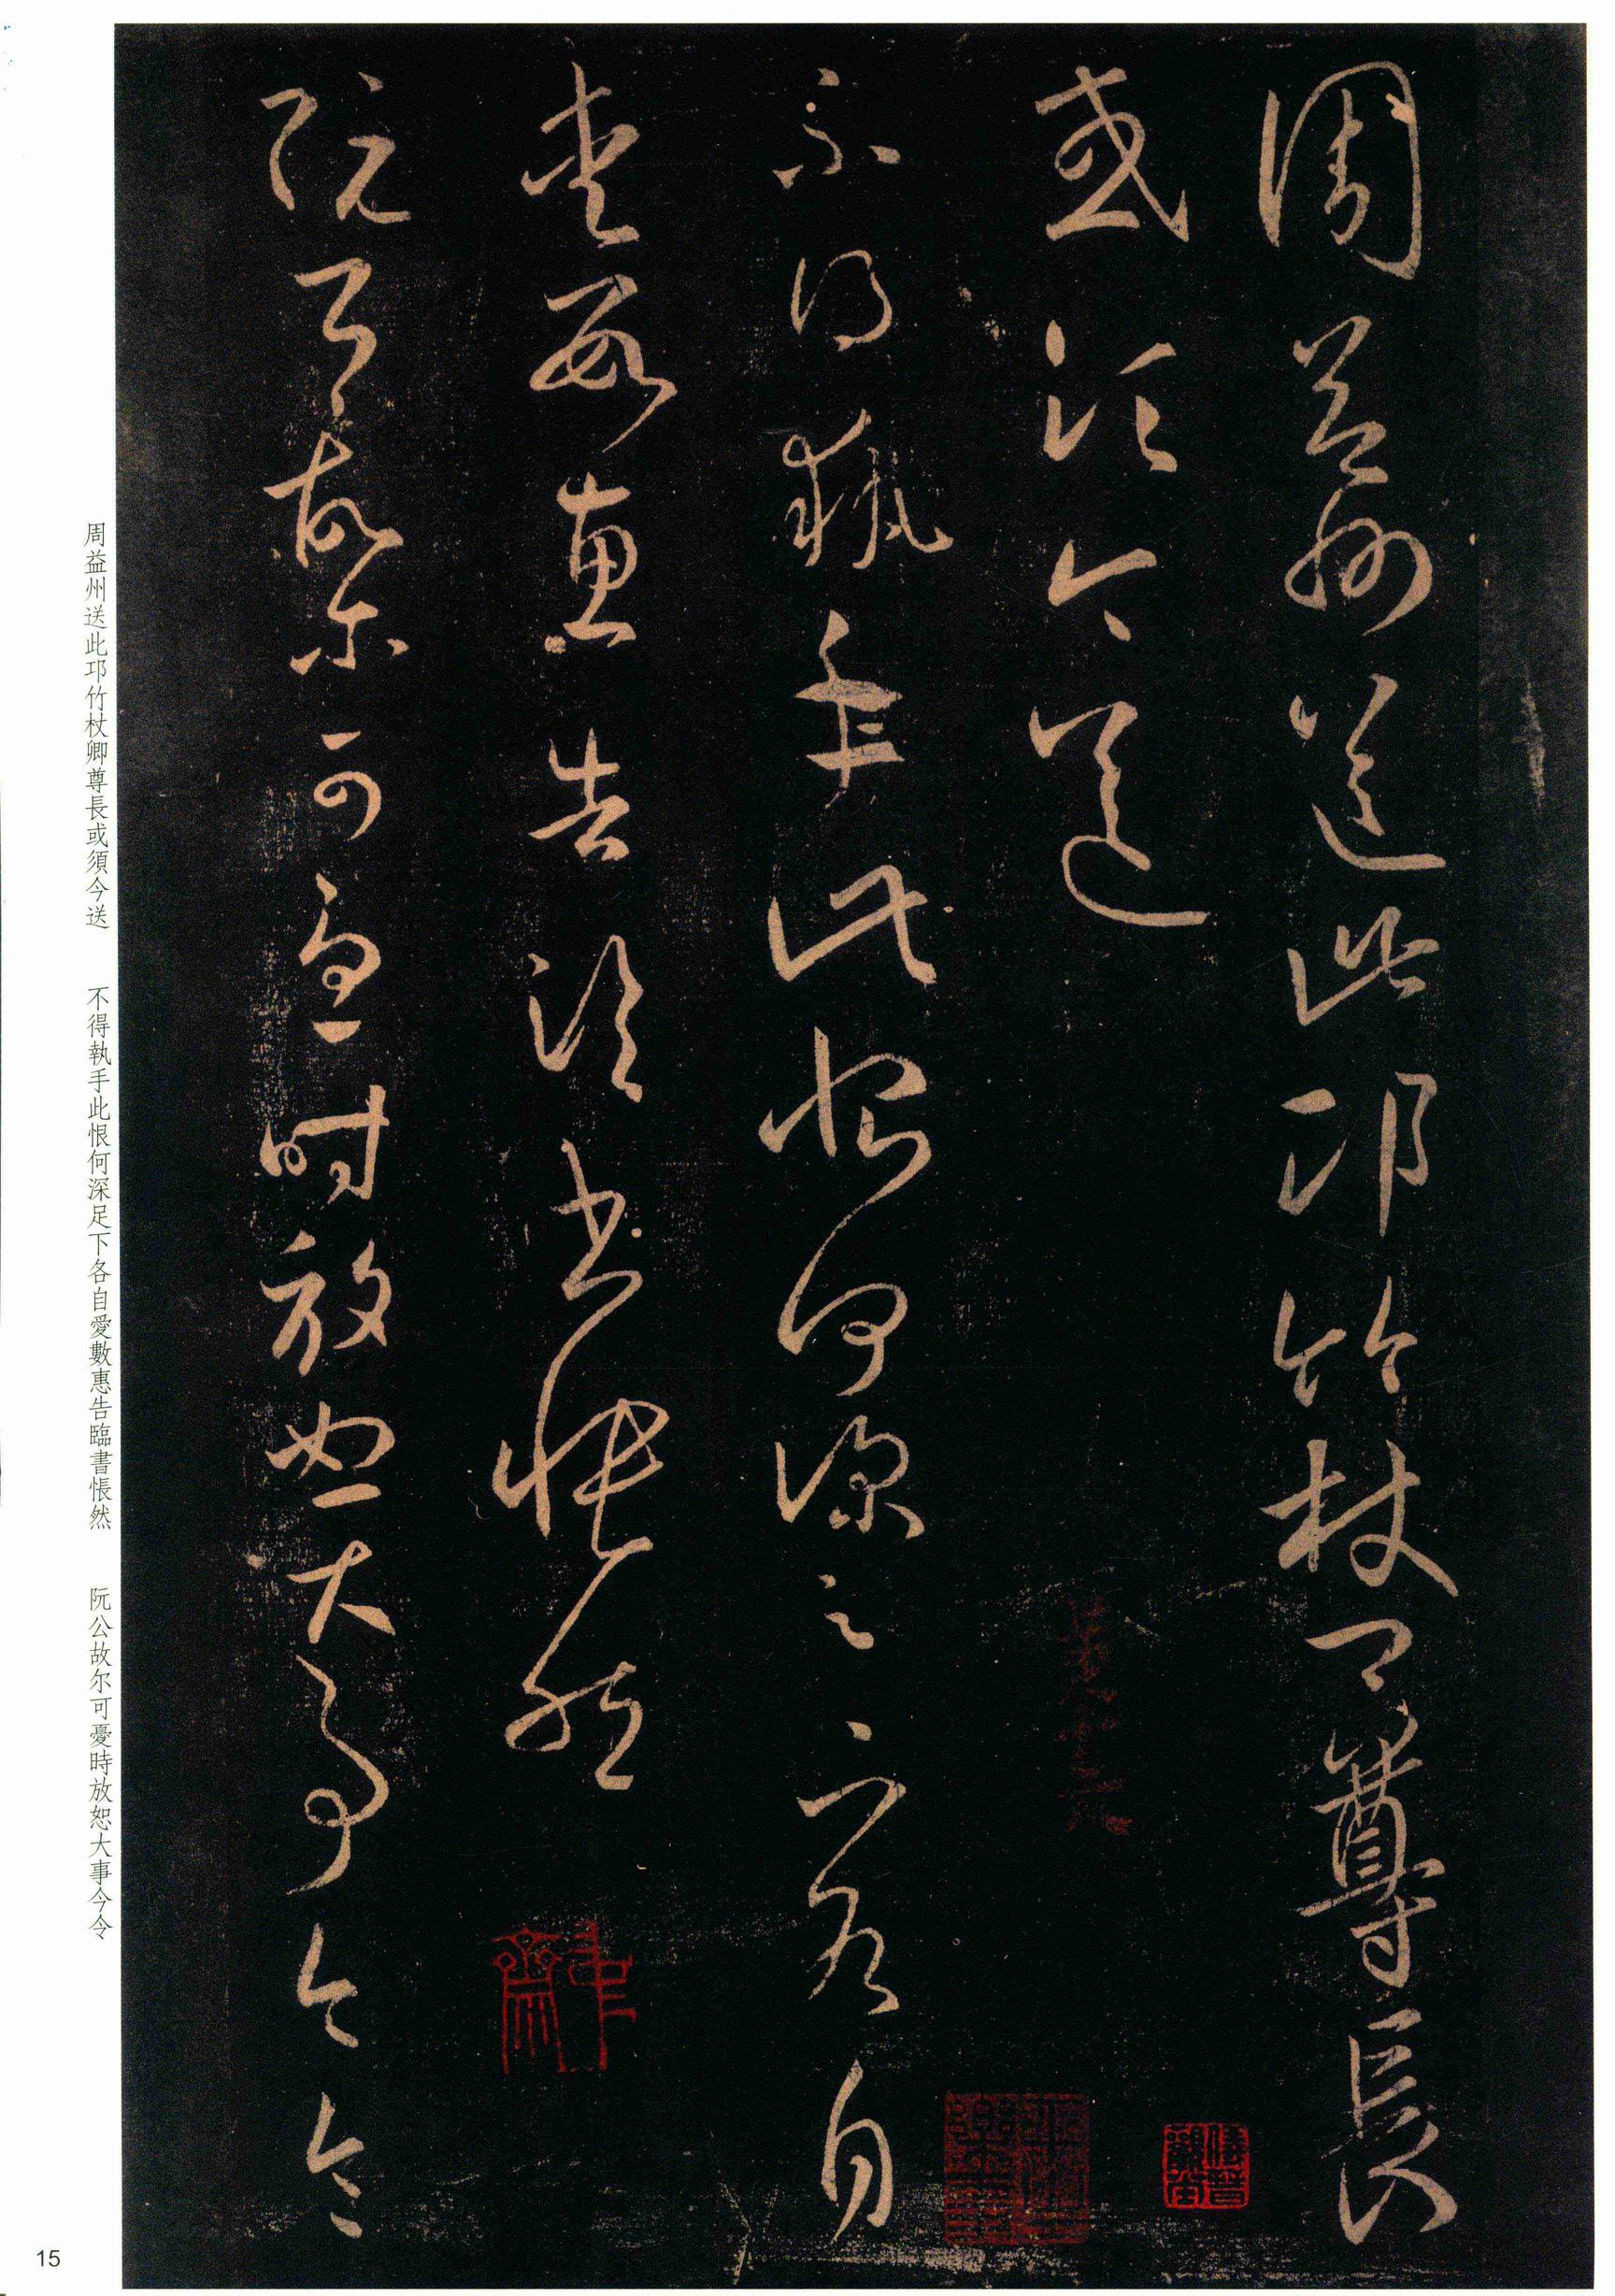 周益州送此邛竹杖卿尊長
或須今送
不得執手此恨何深足下各自
愛數惠告臨書悵然
阮公故尔可憂時放恕大事今令
周益州送此邛竹杖卿尊長或須今送 不得執手此恨何深足下各自愛數惠告臨書悵然 阮公故尔可憂時放恕大事今令
15